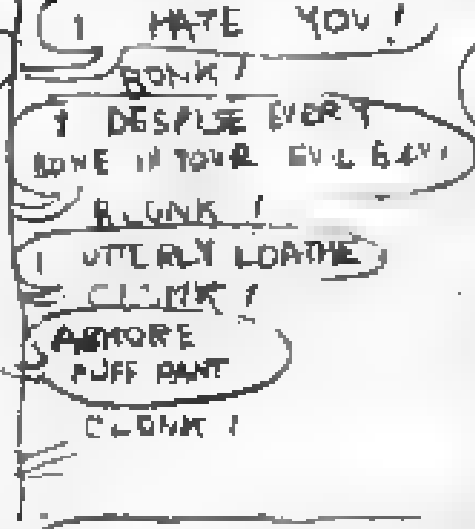 I HATE YOU!
BONK!
I DESPISE EVERY
BONE IN YOUR EVIL
BLONK!
I UTTERLY LOATHE
CLONK!
ABHORE
PUFF PANT
CLONK!